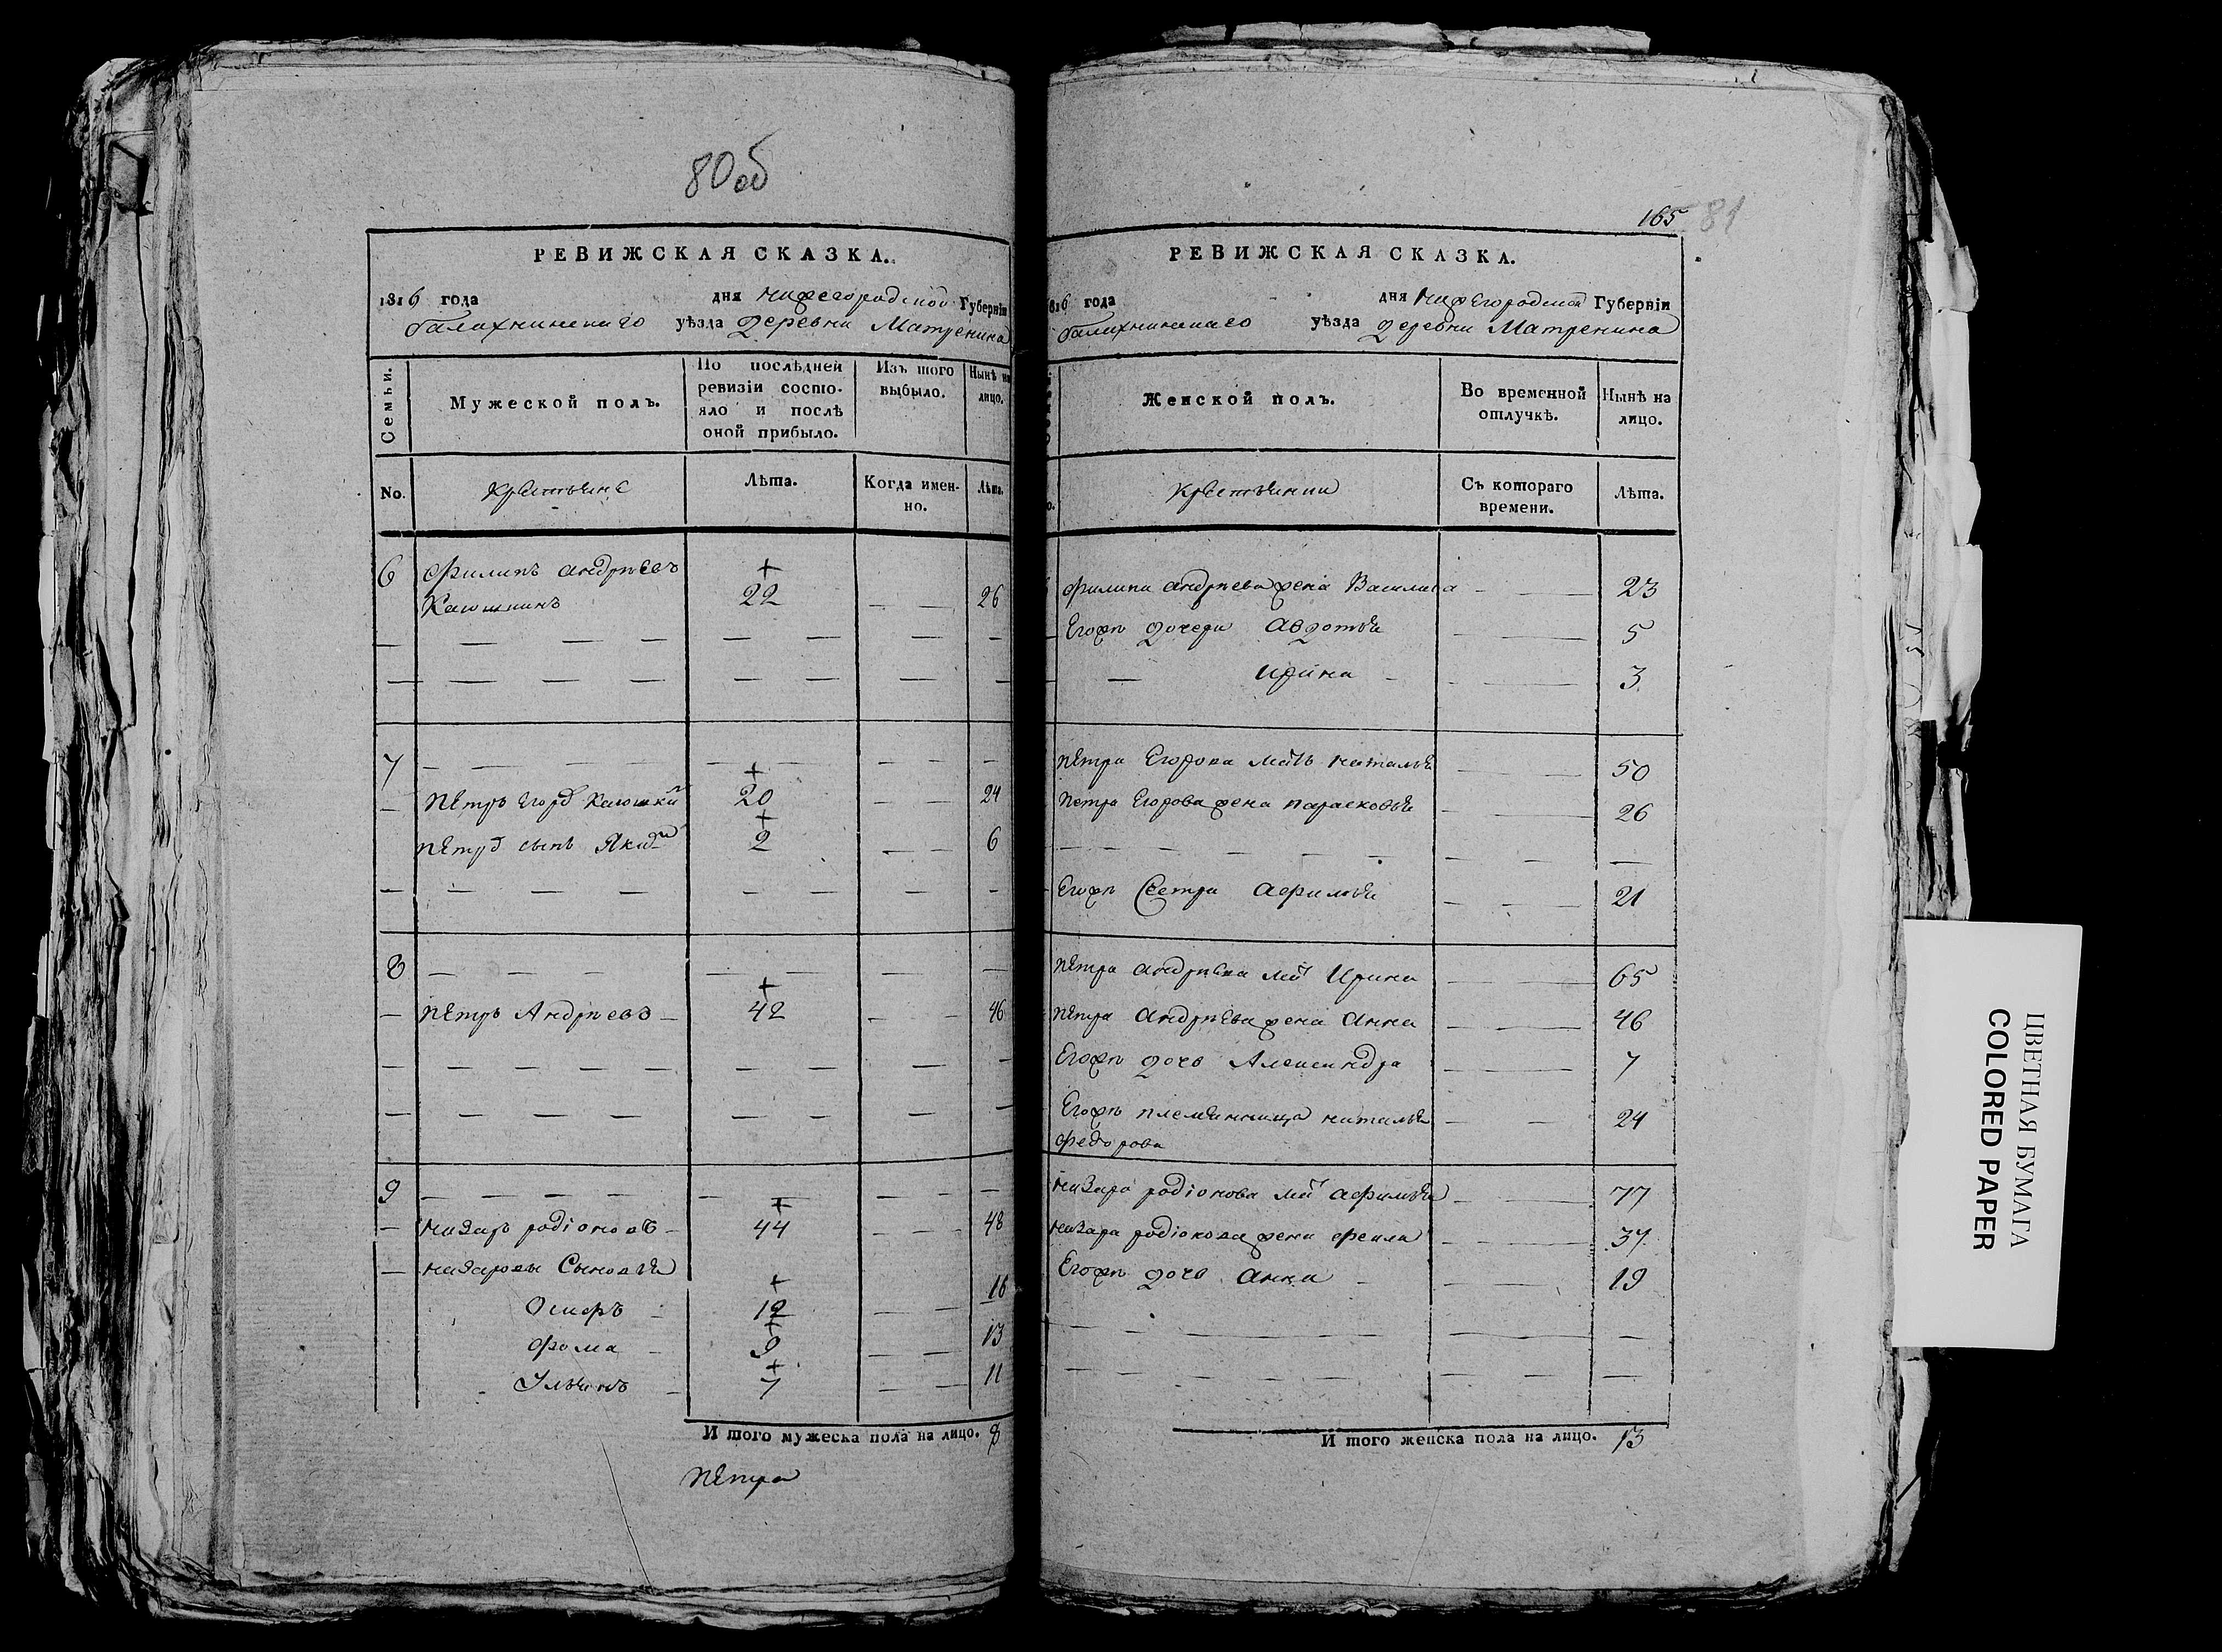 80 об
РЕВИЖСКАЯ СКАЗКА.
1816 года дня нижегородской Губерніи
балахнинскаго уѣзда деревни Матренина
Семьи.
Мужеской полъ.
По послѣдней ревизіи состояло и послѣ оной прибыло.
Изъ того выбыло.
Нынѣ на лицо.
No. крестьяне Лѣта. Когда именно. Лѣта.
6 Филипъ андрѣевъ + 
22 26
— — — — — — — —
— — — — — — — —
7 — — — — — — — — —
— пѣтръ Егоро + 20 — — 24
пѣтро сынъ Яким + 2 — — 6
— — — — — — — — —
8 — — — — — — —
— пѣтръ Андрѣевъ — + 42 — — 46
— — — — — — — —
— — — — — — — —
9 — — — — — — — — —
— назаръ родіоновъ — + 44 — — 48
— назаровы Сыновья
Осипъ + 12 — — 16
Фома — + 9 — — 13
Ульянъ — + 7 — — 11
И того мужеска пола на лицо. 8
пѣтра
165 81
РЕВИЖСКАЯ СКАЗКА.
1816 года дня нижегородской Губерніи
балахнинскаго уѣзда деревни Матренина
Женской полъ.
Во временной отлучкѣ.
Нынѣ на лицо.
крестьянки Съ котораго времени. Лѣта.
филипа андрѣева жена Василиса — — 23
Егожъ дочери авдотья — — 5
— ирина — — — 3
пѣтра Егорова мать наталья — — 50
петра Егорова жена парасковья — — 26
— — — — — — — — —
Егожъ Сестра афимья — — 21
пѣтра андрѣева мать Ирина — — 65
пѣтра андрѣева жена анна — — 46
Егожъ дочь Александра — — 7
Егожъ племянница наталья — — 24
федорова
назара родіонова мать афимья — — 77
назара родіонова жена фекла — — 37
Егожъ дочь анна — — 19
— — — — — — — —
— — — — — — — —
И того женска пола на лицо. 13
ЦВЕТНАЯ БУМАГА
COLORED PAPER